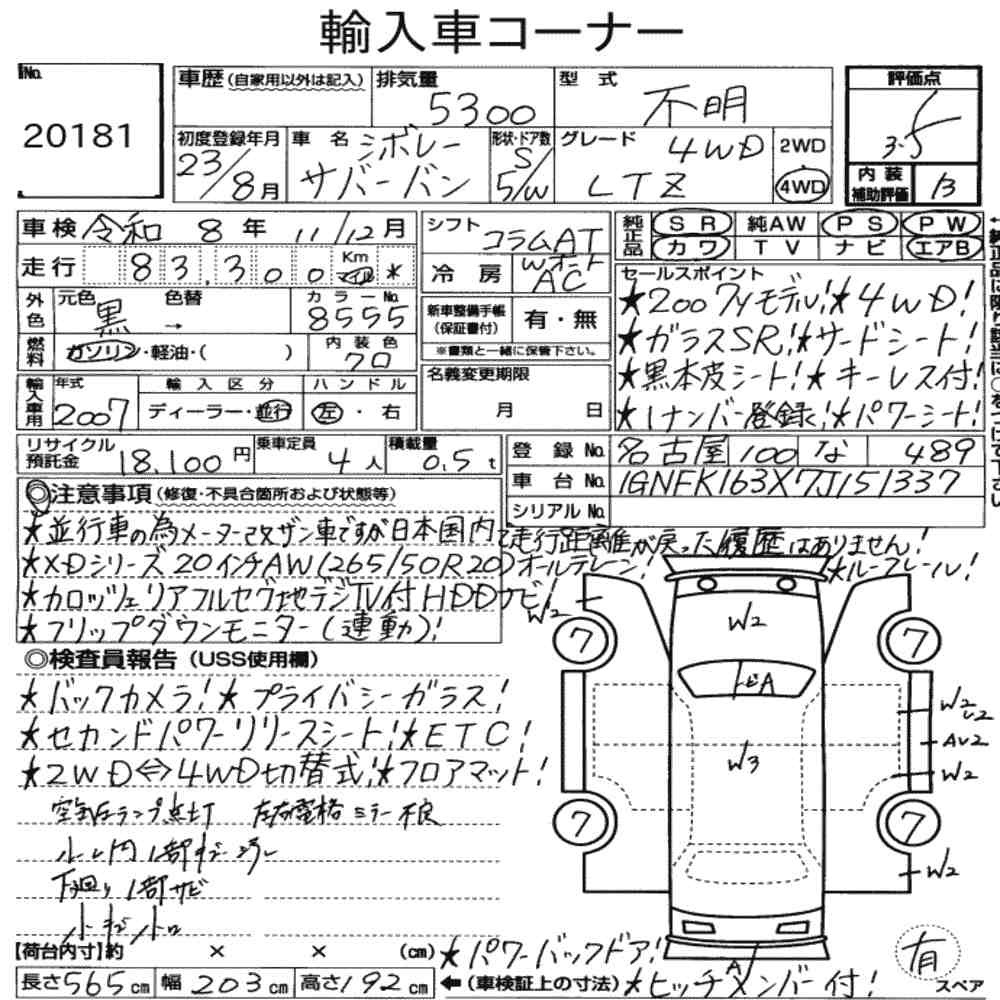 輸入車コーナー
No. 20181
車歴（自家用以外は記入）
排気量 5300
型式 不明
評価点 3.5
初度登録年月 23/8月
車名 シボレー サバーバン
形状・ドア数 5/W
グレード 4WD LTZ
2WD 4WD
内装補助評価 B
車検 令和 8年 11/12月
シフト コラムAT
純正品 SR 純AW PS PW
カワ TV ナビ エアB
走行 83,300 Km マイル *
冷房 Wオート AC
セールスポイント
★2007yモデル!★4WD!
★ガラスSR!★サードシート!
★黒本皮シート!★キーレス付!
★1ナンバー登録!★パワーシート!
外色 元色 黒 色替 → カラーNo. 8555
新車整備手帳（保証書付） 有・無
※書類と一緒に保管下さい。
燃料 ガソリン・軽油・（ ） 内装色 クロ
輸入車用 年式 2007 輸入区分 ディーラー・並行 ハンドル 左・右
名義変更期限 月 日
リサイクル預託金 18,100円 乗車定員 4人 積載量 0.5t
登録No. 名古屋 100 な 489
車台No. 1GNFK163X7J151337
シリアルNo.
◎注意事項（修復・不具合箇所および状態等）
★並行車の為メーター改ザン車ですが日本国内で走行距離が戻った履歴はありません!
★XDシリーズ20インチAW(265/50R20)オールテレーン!★ルーフレール!
★カロッツェリアフルセグ地デジTV付HDDナビ!
★フリップダウンモニター(連動)!
◎検査員報告（USS使用欄）
★バックカメラ!★プライバシーガラス!
★セカンドパワーリリースシート!★ETC!
★2WD⇔4WD切替式!★フロアマット!
空気圧ランプ点灯 左右電格ミラー不良
下廻り1部サビ
W2
W2
7 7
トビA
W2
W3
AU2
W2
7 7
W2
A
【荷台内寸】約 × × （cm）
★パワーバックドア!
長さ565cm 幅203cm 高さ192cm ←（車検証上の寸法）
★ヒッチメンバー付!
有
スペア